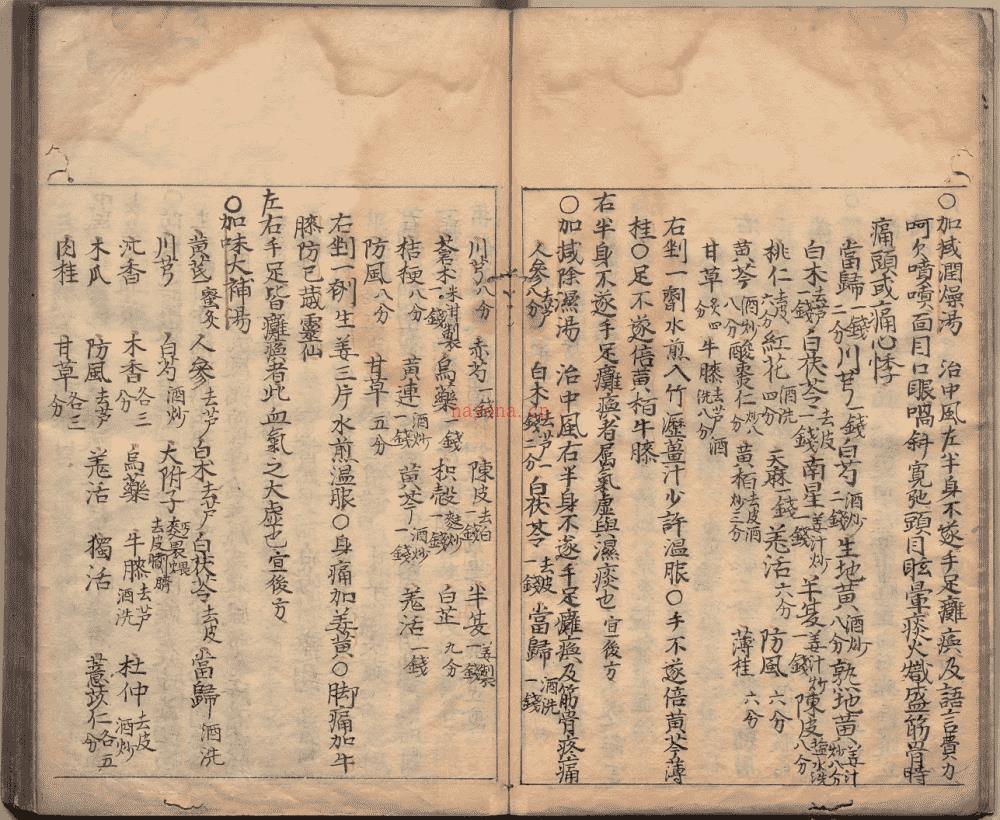 ○加減潤燥湯 治中風左半身不遂手足癱瘓及語言費力
呵欠噴嚏面目口眼喎斜寬弛頭目眩暈痰火熾盛筋骨時
痛頭或痛心悸
當歸一錢二分 川芎一錢 白芍酒炒二錢 生地黃八分酒炒 熟地黃姜汁炒八分
白术去芦一錢 白茯苓去皮一錢 南星姜汁炒一錢 半夏姜汁炒一錢 陳皮鹽水洗八分
桃仁去皮六分 紅花酒洗四分 天麻一錢 羗活六分 防風六分 薄桂六分
黃芩酒炒八分 酸棗仁炒八分 黃柏去皮酒炒三分
甘草炙四分 牛膝去芦酒洗八分
右剉一劑水煎入竹瀝薑汁少許温服○手不遂倍黃芩薄
桂○足不遂倍黃栢牛膝
右半身不遂手足癱瘓者屬氣虛與濕痰也宜後方
○加減除濕湯 治中風右半身不遂手足癱瘓及筋骨疼痛
人參去芦八分 白术去芦一錢二分 白茯苓去皮一錢 當歸酒洗一錢
川芎八分 赤芍一錢 陳皮去白一錢 半夏姜製一錢
蒼术米泔製一錢 烏藥一錢 枳殼麩炒一錢 白芷九分
桔梗八分 黃連酒炒一錢 黃芩酒炒一錢 羗活一錢
防風八分 甘草五分
右剉一劑生姜三片水煎温服○身痛加姜黃○脚痛加牛
膝防己葳靈仙
左右手足皆癱瘓者此血氣之大虛也宜後方
○加味大補湯
黃芪蜜炙 人參去芦 白术去芦 白茯苓去皮 當歸酒洗
川芎 白芍酒炒 大附子麪裹煨去皮臍 牛膝去芦酒洗 杜仲去皮酒炒
沉香 木香各三分 烏藥
木瓜 防風去芦 羗活 獨活 薏苡仁各五分
肉桂 甘草各三分
nagana.cn